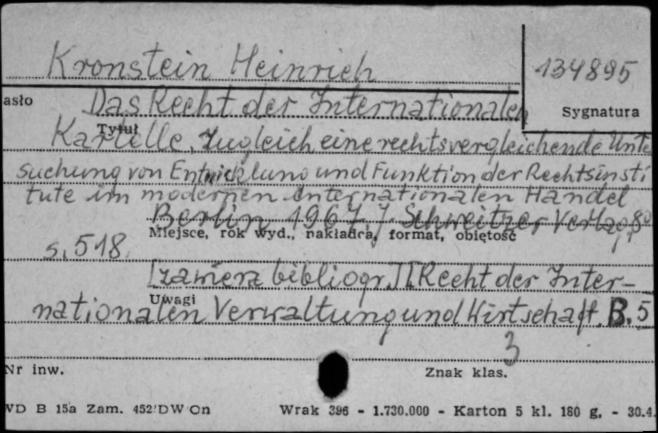 Kronstein Heinrich
134895
asło
Das Recht der Internationalen
Sygnatura
Tytuł
Kartelle. Zugleich eine rechtsvergleichende Unte
suchung von Entwicklung und Funktion der Rechtsinsti
tute im modernen internationalen Handel
Berlin 1967 J. Schweitzer Verlag 8°
Miejsce, rok wyd., nakładca, format, objętość
s. 518.
[zawiera bibliogr.] [Recht der Inter-
Uwagi
nationalen Verwaltung und Wirtschaft B. 5
3
Nr inw.
Znak klas.
VD B 15a Zam. 452/DW On
Wrak 396 - 1.730.000 - Karton 5 kl. 180 g. - 30.4.